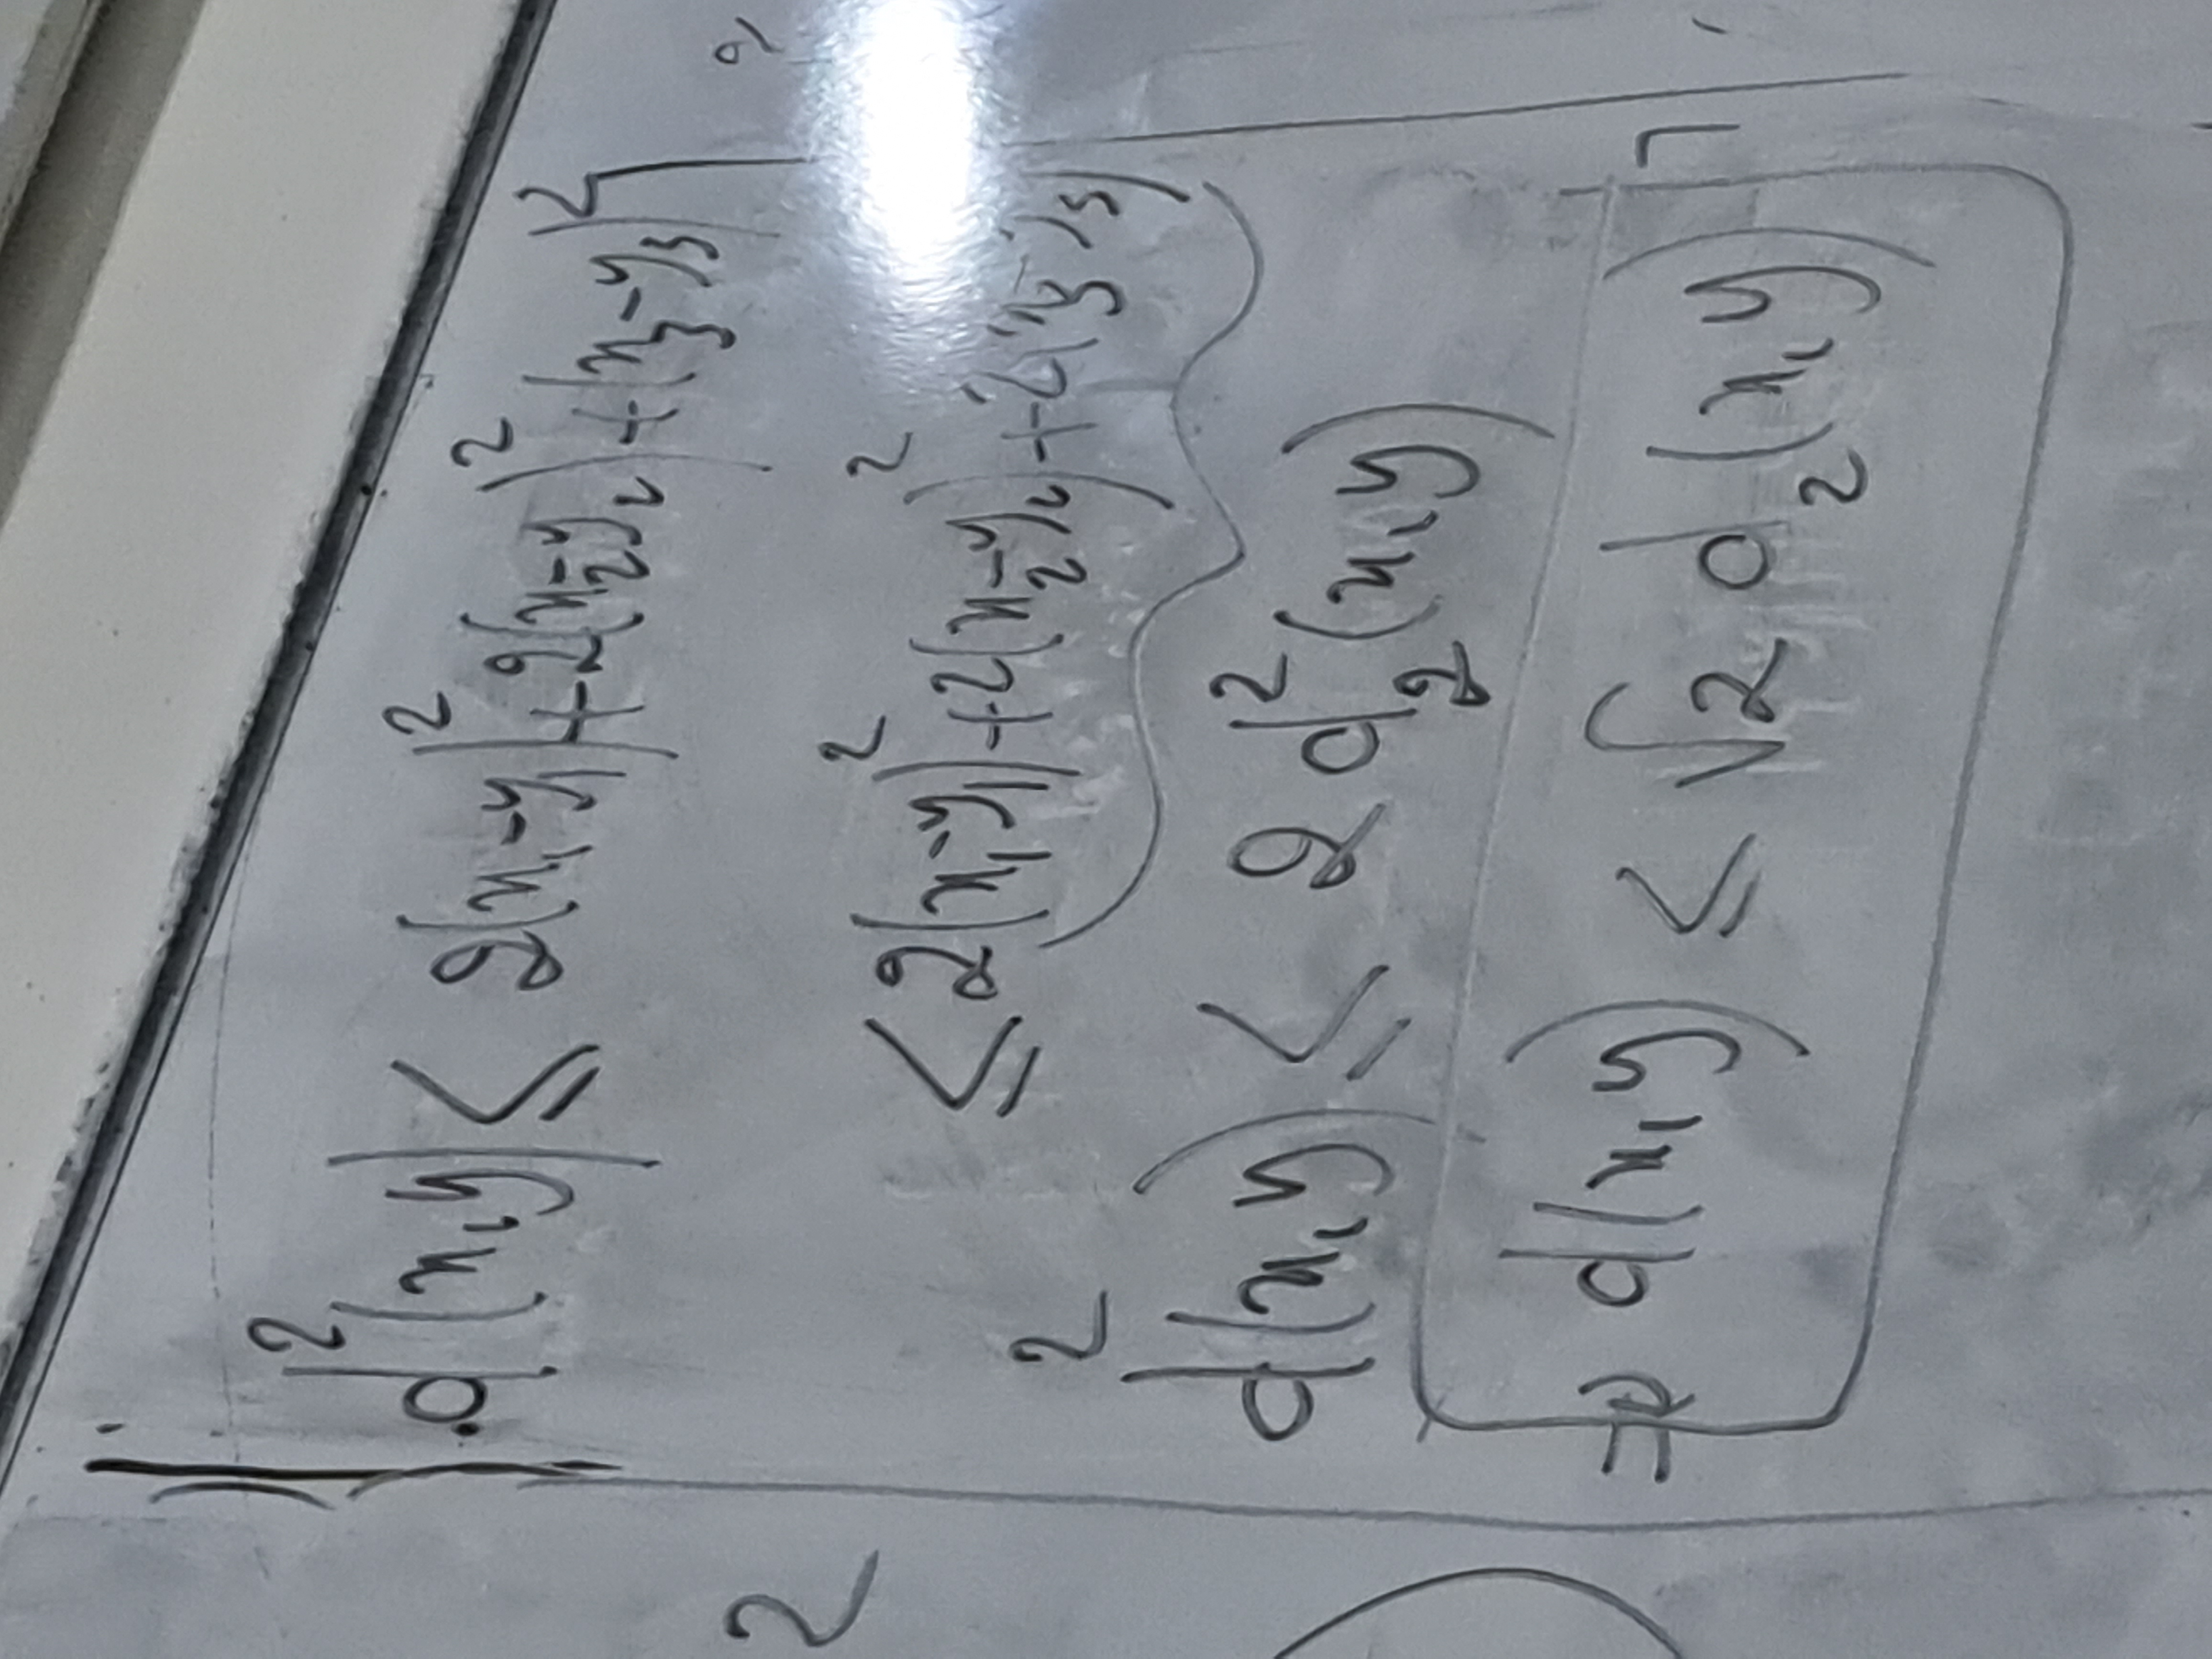 d²(x,y) ≤ 2(x₁-y₁)² + 2(x₂-y₂)² + (x₃-y₃)²
2
≤ 2(x₁-y₁)² + 2(x₂-y₂)² + 2(x₃-y₃)
d²(x,y) ≤ 2 d₂²(x,y)
⇒ d(x,y) ≤ √2 d₂(x,y)